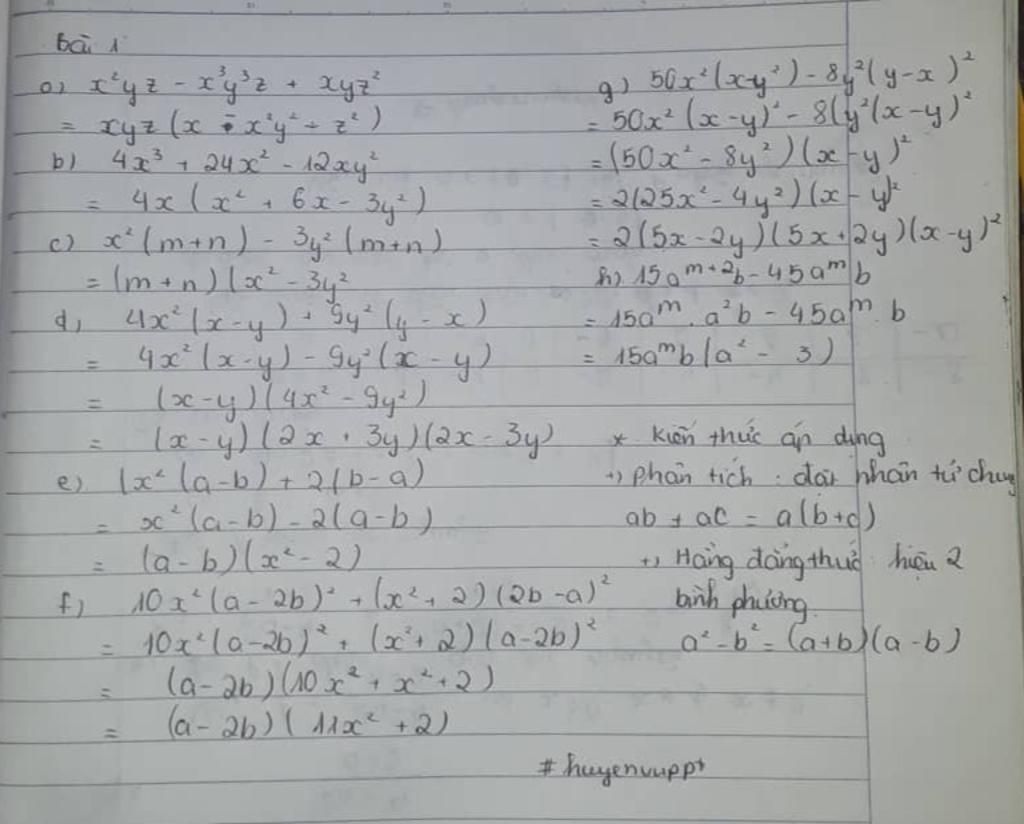 bài 1
a) x²yz - x³y³z + xyz²
= xyz (x - x²y² + z²)
b) 4x³ + 24x² - 12xy²
= 4x (x² + 6x - 3y²)
c) x² (m+n) - 3y² (m+n)
= (m+n) (x² - 3y²
d) 4x² (x-y) + 9y² (y - x)
= 4x² (x-y) - 9y² (x - y)
= (x-y) (4x² - 9y²)
= (x-y) (2x + 3y) (2x - 3y)
e) (x² (a-b) + 2(b-a)
= x² (a-b) - 2(a-b)
= (a-b) (x² - 2)
f) 10x² (a-2b)² + (x²+2) (2b-a)²
= 10x² (a-2b)² + (x²+2) (a-2b)²
= (a-2b) (10x² + x² + 2)
= (a-2b) (11x² + 2)
g) 50x² (x-y²) - 8y² (y-x)²
= 50x² (x-y)² - 8(y² (x-y)²
= (50x² - 8y²) (x-y)²
= 2(25x² - 4y²) (x-y)²
= 2(5x-2y) (5x+2y) (x-y)²
h) 15a^m+2b - 45a^m b
= 15a^m . a²b - 45a^m . b
= 15a^m b (a² - 3)
* kiến thức áp dụng
+) phân tích : đặt nhân tử chung
ab + ac = a(b+c)
+) Hằng đẳng thức : hiệu 2
bình phương
a² - b² = (a+b) (a-b)
# huyenvuppt